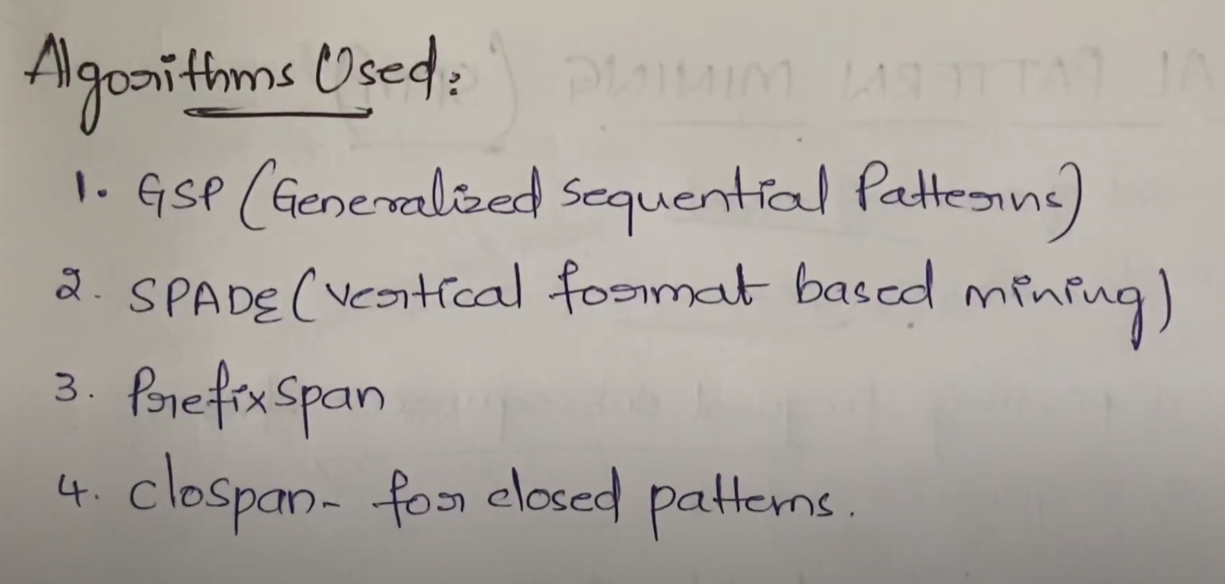 Algorithms Used:
1. GSP (Generalized Sequential Patterns)
2. SPADE (Vertical format based mining)
3. Prefixspan
4. clospan- for closed patterns.